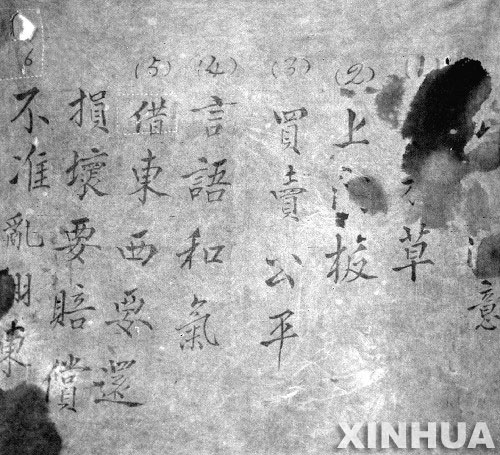 意
草
(2) 上门板
(3) 買賣公平
(4) 言語和氣
(5) 借東西要還
損壞要賠償
6 不准亂用東
XINHUA